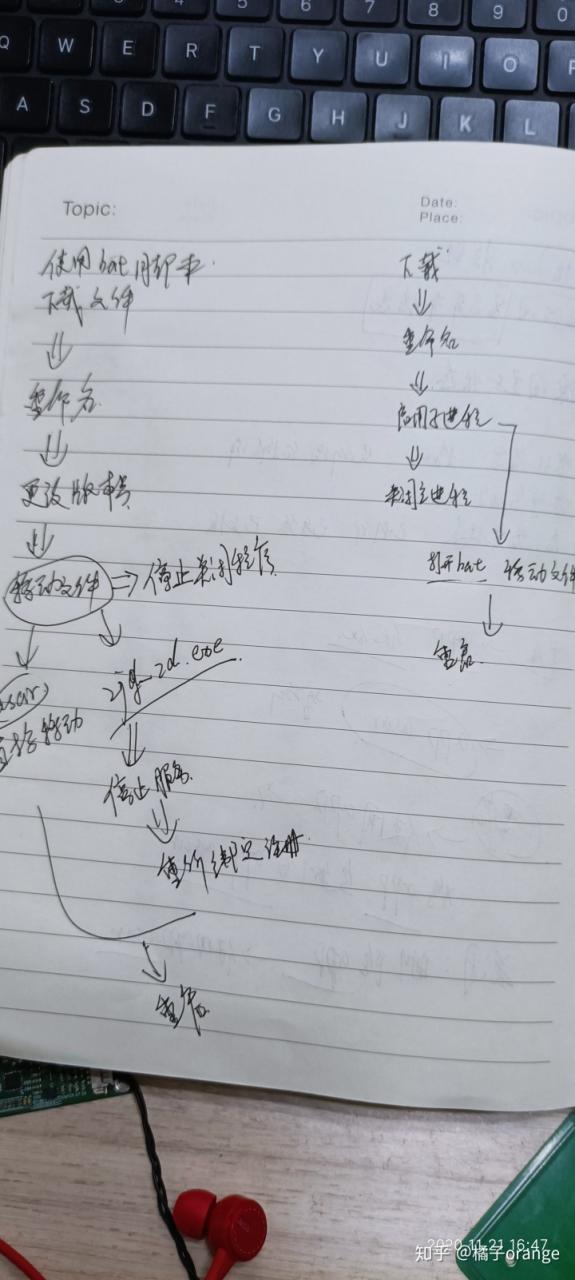 Q W E R T Y U I O P
A S D F G H J K L
Topic:
Date:
Place:
使用bat脚本
下载文件
重命名
更改版本号
移动文件 停止关闭程序
asar
直接移动
.exe
停止服务
重新绑定注册
重启
下载
重命名
启用子进程
关闭主进程
打开bat 移动文件
重启
2020.11.21 16:47
知乎 @橘子orange